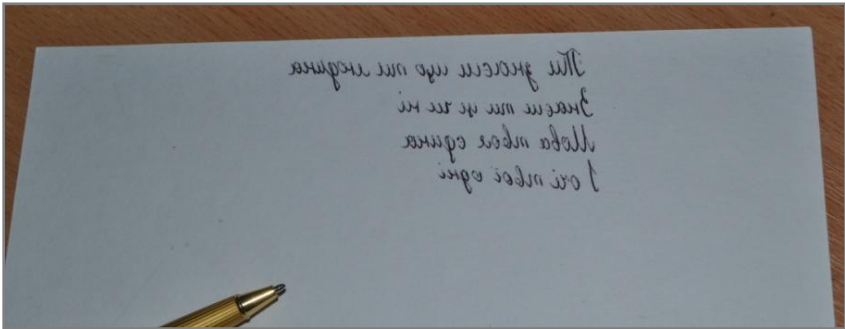 Ти знаєш що ти людина
Знаєш ти це чи ні
Мова твоя єдина
І очі твої одні